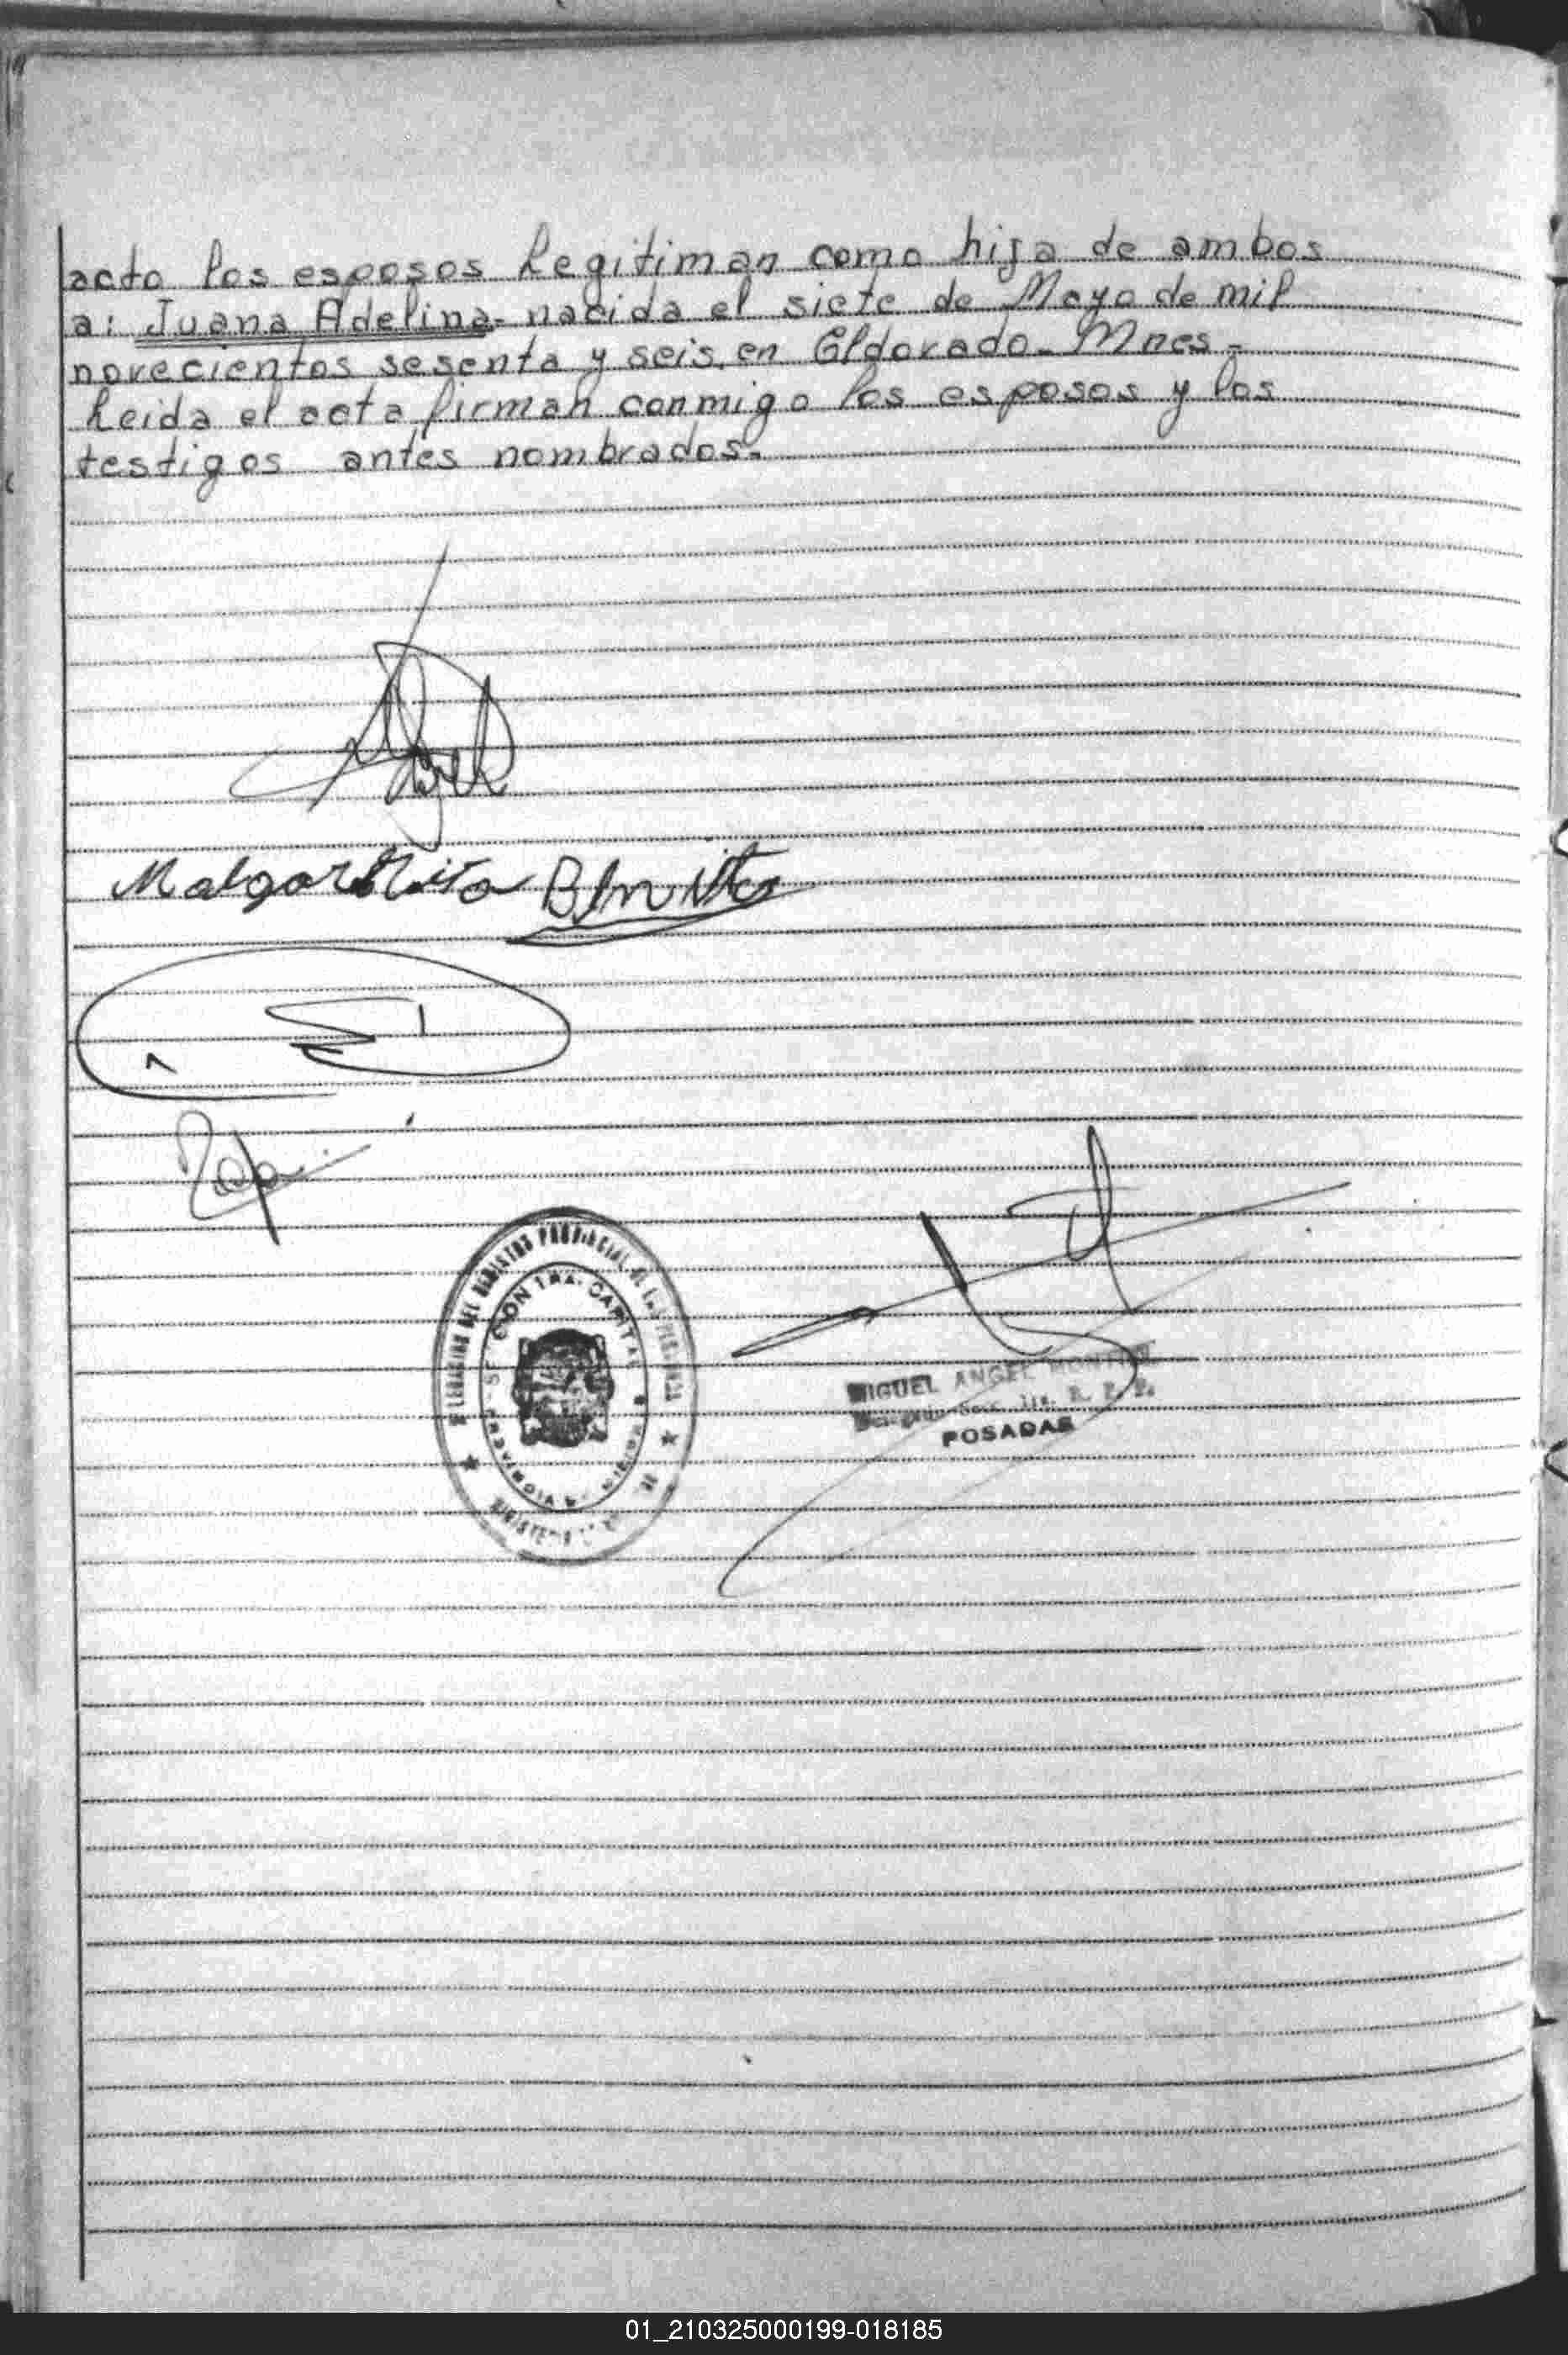 acto los esposos Legitiman como hija de ambos
a: Juana Adelina- nacida el siete de Mayo de mil
novecientos sesenta y seis, en Eldorado- Mnes-
Leida el acta firman conmigo los esposos y los
testigos antes nombrados-
Malgarita Benitez
DEL REGISTRO PROVINCIAL DE LAS PERSONAS
SECCION 1RA. CAPITAL
MIGUEL ANGEL
POSADAS
01_210325000199-018185